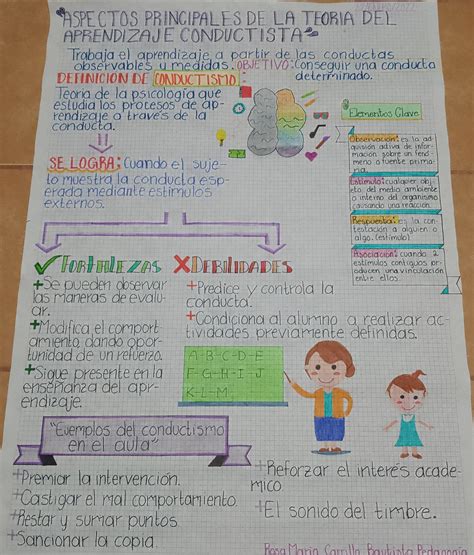 "ASPECTOS PRINCIPALES DE LA TEORIA DEL
APRENDIZAJE CONDUCTISTA"
Trabaja el aprendizaje a partir de las conductas
observables y medidas. OBJETIVO: Conseguir una conducta
determinado.
DEFINICION DE CONDUCTISMO
Teoria de la psicología que
estudia los procesos de ap-
rendizaje a través de la
conducta.
SE LOGRA: Cuando el suje-
to muestra la conducta esp-
erada mediante estímulos
externos.
Elementos Clave
Observación: es la ad-
quisión activa de infor-
mación sobre un fenó-
meno o fuente prima-
ria.
Estímulo: cualquier obj-
eto del medio ambiente
o interno del organismo
causando una reacción.
Respuesta: es la con-
testación a alguien o
algo. (estímulo).
Asociación: cuando 2
estímulos contiguos pr-
oducen una vinculación
entre ellos.
FORTALEZAS
+Se pueden observar
las maneras de evalu-
ar.
+Modifica el comport-
amiento dando opor-
tunidad de un refuerzo.
+Sigue presente en la
enseñanza del apr-
endizaje.
DEBILIDADES
+Predice y controla la
conducta.
+Condiciona al alumno a realizar ac-
tividades previamente definidas.
A-B-C-D-E
F-G-H-I-J
K-L-M
"Ejemplos del conductismo
en el aula"
+Premiar la intervención.
+Castigar el mal comportamiento
+Restar y sumar puntos
+Sancionar la copia.
+Reforzar el interés acadé-
mico
+El sonido del timbre.
Rosa María Carrillo Bautista Pedagogía